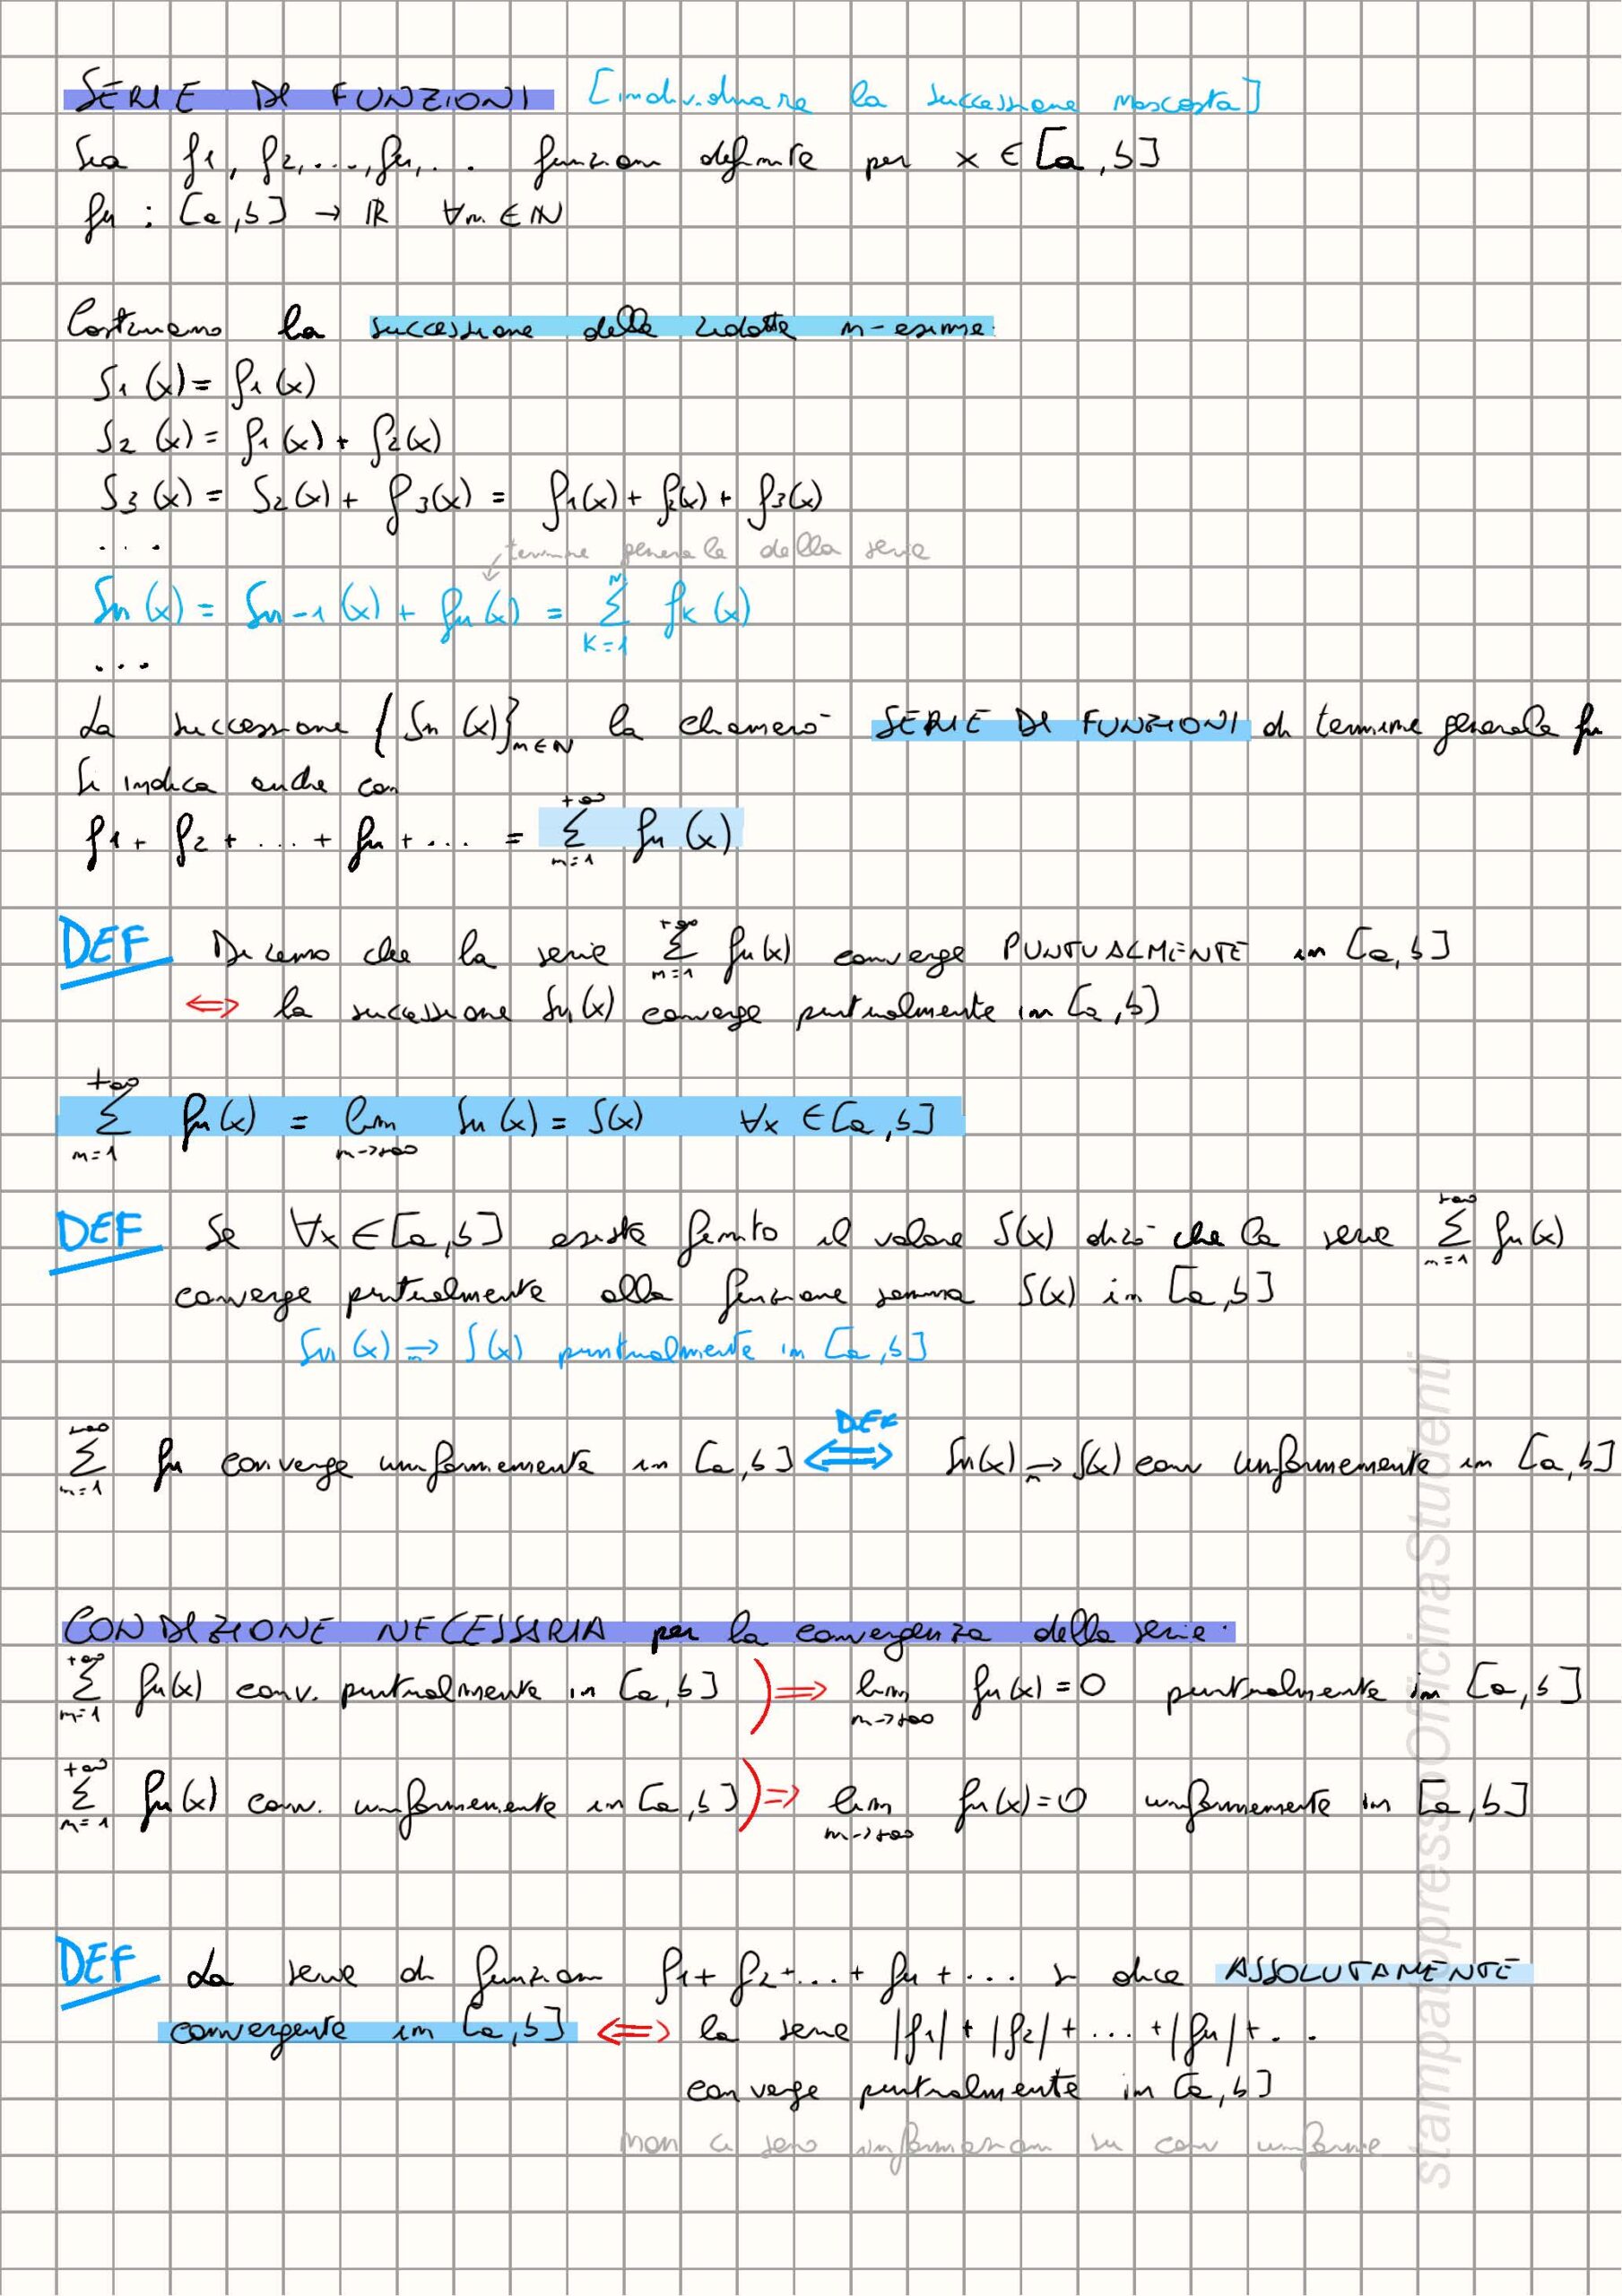 SERIE DI FUNZIONI [individuare la successione nascosta]
Sia f1, f2, ..., fn, ... funzioni definite per x ∈ [a, b]
fn : [a, b] → ℝ ∀n ∈ ℕ
Costruiamo la successione delle ridotte n-esime.
S1(x) = f1(x)
S2(x) = f1(x) + f2(x)
S3(x) = S2(x) + f3(x) = f1(x) + f2(x) + f3(x)
...
termine generale della serie
Sn(x) = Sn-1(x) + fn(x) = Σ_{k=1}^{n} fk(x)
...
La successione {Sn(x)}n∈N la chiamerò SERIE DI FUNZIONI di termine generale fn
Si indica anche con
f1 + f2 + ... + fn + ... = Σ_{n=1}^{+∞} fn(x)
DEF Diciamo che la serie Σ_{n=1}^{+∞} fn(x) converge PUNTUALMENTE in [a, b]
⟺ la successione Sn(x) converge puntualmente in [a, b]
Σ_{n=1}^{+∞} fn(x) = lim_{n→+∞} Sn(x) = S(x) ∀x ∈ [a, b]
DEF Se ∀x ∈ [a, b] esiste finito il valore S(x) dirò che la serie Σ_{n=1}^{+∞} fn(x)
converge puntualmente alla funzione somma S(x) in [a, b]
Sn(x) →n S(x) puntualmente in [a, b]
DEF
Σ_{n=1}^{+∞} fn converge uniformemente in [a, b] ⟺ Sn(x) →n S(x) conv uniformemente in [a, b]
CONDIZIONE NECESSARIA per la convergenza della serie.
Σ_{n=1}^{+∞} fn(x) conv. puntualmente in [a, b] ) ⟹ lim_{n→+∞} fn(x) = 0 puntualmente in [a, b]
Σ_{n=1}^{+∞} fn(x) conv. uniformemente in [a, b] ) ⟹ lim_{n→+∞} fn(x) = 0 uniformemente in [a, b]
DEF La serie di funzioni f1 + f2 + ... + fn + ... si dice ASSOLUTAMENTE
convergente in [a, b] ⟺ la serie |f1| + |f2| + ... + |fn| + ..
converge puntualmente in [a, b]
non ci sono informazioni su conv uniforme
stampatoppressoOfficinaStudenti